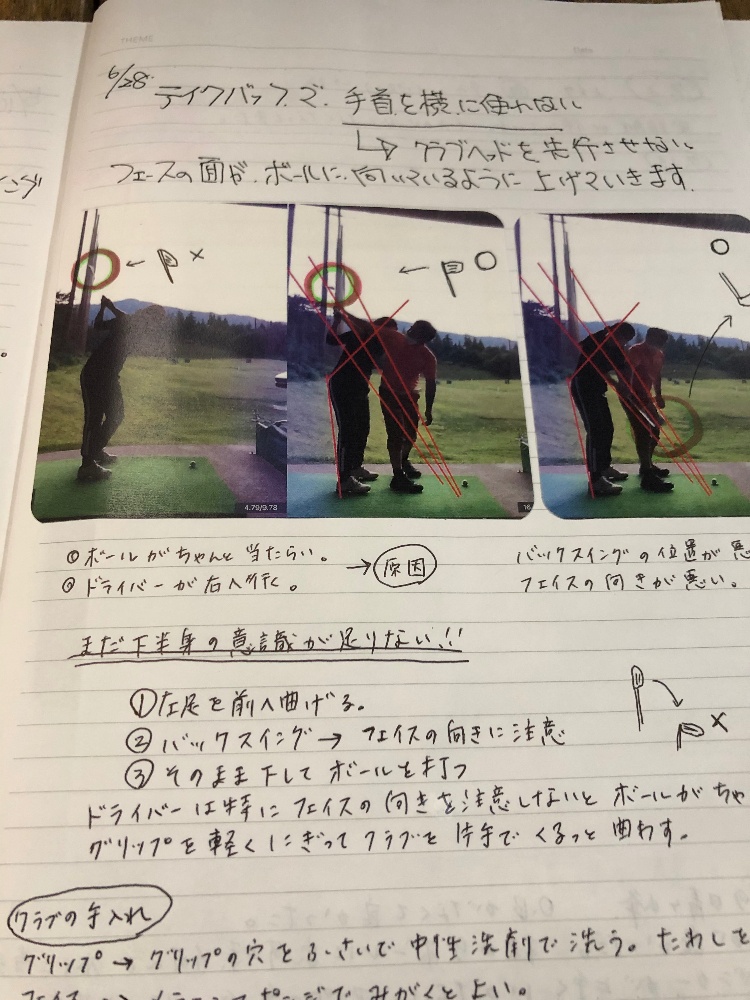 6/28. テイクバックで、手首を横に使わない
↳ クラブヘッドを先行させない
フェースの面が、ボールに、向いているように上げていきます。
ング
← ×
← ○
○
4.79/9.78
16
◎ ボールがちゃんと当たらい。
◎ ドライバーが右へ行く。
→ 原因
バックスイングの位置が悪
フェイスの向きが悪い。
まだ下半身の意識が足りない!!
① 左足を前へ曲げる。
② バックスイング → フェイスの向きに注意
×
③ そのまま下してボールを打つ
ドライバーは特にフェイスの向きを注意しないとボールがちゃ
グリップを軽くにぎってクラブを片手でくるっと曲わす。
クラブの手入れ
グリップ → グリップの穴をふさいで中性洗剤で洗う。たわしを
フェイス → スポンジでみがくと良い。